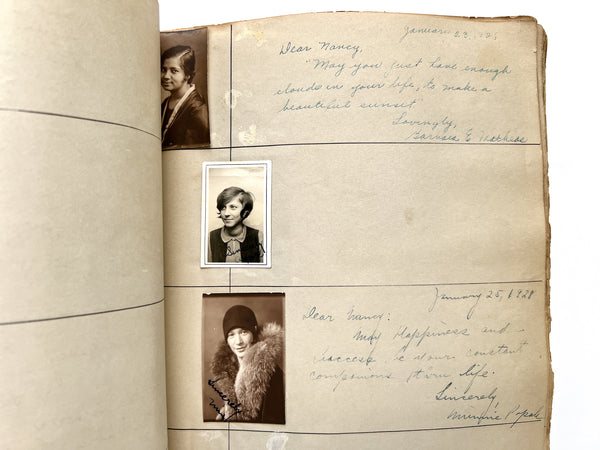 January 23, 1928
Dear Nancy,
"May you just have enough
clouds in your life, to make a
beautiful sunset"
Lovingly,
E. Mathias
January 25, 1928
Dear Nancy:
May Happiness and
success be your constant
companions thru life.
Sincerely,
Minnie
Sincerely